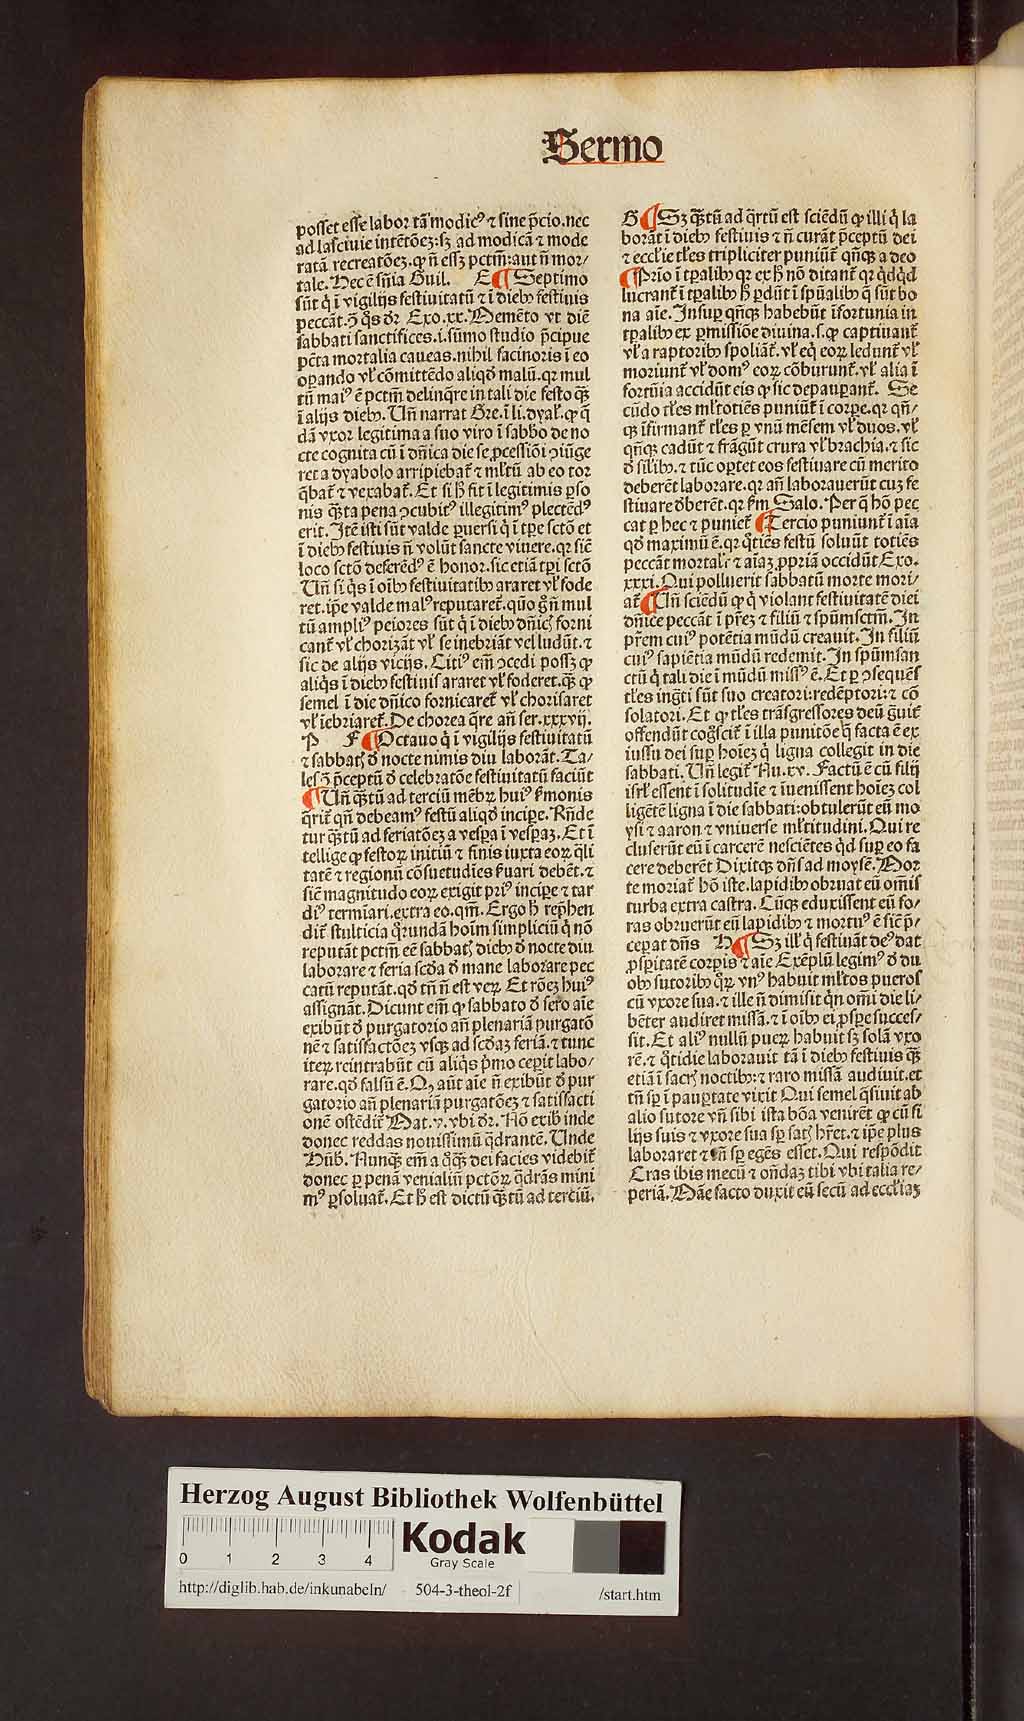 Sermo
posset esse labor tā modicꝰ ⁊ sine p̄cio. nec
ad lasciuie intētōeʒ: sʒ ad modicā ⁊ mode
ratā recreatōeʒ. ꝙ n̄ essʒ pctm̄: aut n̄ mor/
tale. Hec ē sn̄ia Guil. E ¶ Septimo
sūt q̇ ī vigilijs festiuitatū ⁊ ī dieb⁹ festiuis
peccāt. ꝯ q̊s dr̄ Exo. xx. Memēto vt diē
sabbati sanctifices. i. sūmo studio p̄cipue
pctā mortalia caueas. nihil facinoris ī eo
oꝑando vl̕ cōmittēdo aliqd̕ malū. qꝛ mul
tū maiꝰ ē pctm̄ delinq̄re in tali die festo qꝫ̄
ī alijs dieb⁹. Vn̄ narrat Gre. ī li. dyal̕. ꝙ q̄
dā vxor legitima a suo viro ī sabb̕o de no
cte cognita cū ī dn̄ica die se ꝓcessiōi ꝯiūge
ret a dyabolo arripiebat̄ ⁊ ml̕tū ab eo tor
q̄bat̄ ⁊ vexabat̄. Et si h̕ fit ī legitimis ꝑso
nis qꝫ̄ta pena ꝯcubitꝰ illegitimꝰ plectēdꝰ
erit. Itē isti sūt valde ꝑuersi q̇ ī tp̄e sctō et
ī dieb⁹ festiuis n̄ volūt sancte viuere. qꝛ siē
loco sctō deferēdꝰ ē honor. sic etiā tp̄i sctō
Vn̄ si q̊s ī oīb⁹ festiuitatib⁹ araret vl̕ fode
ret. ip̄e valde malꝰ reputaret̄. quō g̊ n̄ mul
tū ampliꝰ peiores sūt q̇ ī dieb⁹ dn̄icꝭ forni
cant̄ vl̕ chorizāt vl̕ se inebriāt vel ludūt. ⁊
sic de alijs vicijs. Citiꝰ em̄ ꝯcedi possʒ ꝙ
aliq̊s ī dieb⁹ festiuis araret vl̕ foderet. qꝫ̄ ꝙ
semel ī die dn̄ico fornicaret̄ vl̕ chorisaret
vl̕ īebriaret̄. De chorea q̄re an̄ ser. xxxvij.
P F ¶ Octauo q̇ ī vigilijs festiuitatū
⁊ sabbatꝭ d̕ nocte nimis diu laborāt. Ta/
les ꝯ p̄ceptū d̕ celebratōe festiuitatū faciūt
¶ Vn̄ qꝫ̄tū ad terciū mēbꝝ huiꝰ s̕monis
q̄rit̄ qn̄ debeamꝰ festū aliqd̕ incipe. Rn̄de
tur qꝫ̄tū ad feriatōeʒ a vesꝑa ī vesꝑaʒ. Et ī
tellige ꝙ festoꝝ initiū ⁊ finis iuxta eoꝝ q̄li
tatē ⁊ regionū cōsuetudīes s̕uari debēt. ⁊
siē magnitudo eoꝝ exigit priꝰ incipe ⁊ tar
diꝰ termīari. extra eo. qm̄. Ergo h̕ rep̄hen
dit̄ stulticia q̊rundā hoīm simpliciū q̇ nō
reputāt pctm̄ eē sabbatꝭ dieb⁹ d̕ nocte diu
laborare ⁊ feria scd̕a d̕ mane laborare pec
catū reputāt. qd̕ tn̄ n̄ est veꝝ. Et rōeʒ huiꝰ
assignāt. Dicunt em̄ ꝙ sabbato d̕ sero aīe
exibūt d̕ purgatorio an̄ plenariā purgatō
nē ⁊ satisfactōeʒ vsqꝫ ad scd̕aʒ feriā. ⁊ tunc
iteꝝ reintrabūt cū aliq̊s p̄mo cepit labo/
rare. qd̕ falsū ē. Qꝫ aūt aīe n̄ exibūt d̕ pur
gatorio an̄ plenariā purgatōeʒ ⁊ satisfacti
onē ostēdit̄ Mat. v. vbi dr̄. Nō exib̕ inde
donec reddas nouissimū q̄drantē. Unde
Hūb̕. Nunqꝫ̄ em̄ a q̊qꝫ̄ dei facies videbit̄
donec ꝑ penā venialiū pctōꝝ q̄drās mini
mꝰ ꝑsoluat̄. Et h̕ est dictū qꝫ̄tū ad terciū.
G ¶ Sʒ qꝫ̄tū ad q̄rtū est sciēdū ꝙ illi q̇ la
borāt ī dieb⁹ festiuis ⁊ n̄ curāt p̄ceptū dei
⁊ eccl̕ie tl̕es tripliciter puniūt̄ qn̄qꝫ a deo
¶ Prīo ī tꝑalib⁹ qꝛ ex h̕ nō ditant̄ qꝛ q̇dq̇d
lucrant̄ ī tꝑalib⁹ h̕ ꝑdūt ī spūalib⁹ q̄ sūt bo
na aīe. Insuꝑ qn̄qꝫ habebūt īfortunia in
tꝑalib⁹ ex ꝑmissiōe diuina. s. ꝙ captiuant̄
vl̕ a raptorib⁹ spoliāt̄. vl̕ eq̇ eoꝝ ledunt̄ vl̕
moriunt̄ vl̕ domꝰ eoꝝ cōburunt̄. vl̕ alia ī
fortūia accidūt eis ꝙ sic depauꝑant̄. Se
cūdo tl̕es ml̕totiēs puniūt̄ ī corꝑe. qꝛ qn̄/
qꝫ īfirmant̄ tl̕es ꝑ vnū mēsem vl̕ duos. vl̕
qn̄qꝫ cadūt ⁊ frāgūt crura vl̕ brachia. ⁊ sic
d̕ sil̕ib⁹. ⁊ tūc oꝑtet eos festiuare cū merito
deberēt laborare. qꝛ an̄ laborauerūt cuʒ fe
stiuare d̕berēt. qꝛ s̕m Salo. Per q̄ hō pec
cat ꝑ hec ⁊ puniet̄ ¶ Tercio puniunt̄ ī aīa
qd̕ maximū ē. qꝛ q̊tiēs festū soluūt totiēs
peccāt mortalr̄ ⁊ aīaʒ ꝓpriā occidūt Exo.
xxxi. Qui polluerit sabbatū morte mori/
at̄ ¶ Vn̄ sciēdū ꝙ q̇ violant festiuitatē diei
dn̄ice peccāt ī pr̄eʒ ⁊ filiū ⁊ spūmsctm̄. In
pr̄em cuiꝰ potētia mūdū creauit. In filiū
cuiꝰ sapiētia mūdū redemit. In spūmsan
ctū q̇ tali die ī mūdū missꝰ ē. Et ꝑ ꝯsequēs
tl̕es ingr̄ti sūt suo creatori: redēptori: ⁊ cō
solatori. Et ꝙ tl̕es trāsgressores deū g̊uit̄
offendūt cog̊scit̄ ī illa punitōe q̄ facta ē ex
iussu dei suꝑ hoīeʒ q̇ ligna collegit in die
sabbati. Vn̄ legit̄ Nu. xv. Factū ē cū filij
isrl̕ essent ī solitudīe ⁊ īuenissent hoīeʒ col
ligētē ligna ī die sabbati: obtulerūt eū mo
ysi ⁊ aaron ⁊ vniuerse ml̕titudini. Qui re
cluserūt eū ī carcerē nesciētes q̇d suꝑ eo fa
cere deberēt Dixitqꝫ dn̄s ad moysē. Mor
te moriat̄ hō iste. lapidib⁹ obruat eū om̄is
turba extra castra. Cūqꝫ eduxissent eū fo/
ras obruerūt eū lapidib⁹ ⁊ mortuꝰ ē siē p̄/
ceperat dn̄s H ¶ Sʒ ill̕ q̇ festiuāt deꝰ dat
ꝓspitatē corꝑis ⁊ aīe Exēplū legimꝰ d̕ du
ob⁹ sutorib⁹ q̊ꝝ vnꝰ habuit ml̕tos pueros
cū vxore sua. ⁊ ille n̄ dimisit q̇n om̄i die li/
bēter audiret missā. ⁊ ī oīb⁹ ei ꝓspe succes/
sit. Et aliꝰ nullū pueꝝ habuit sʒ solā vxo
rē. ⁊ q̊tidie laborauit tā ī dieb⁹ festiuis qꝫ̄
etiā ī sacrꝭ noctib⁹: ⁊ raro missā audiuit. et
tn̄ sꝑ ī pauꝑtate vixit Qui semel q̄siuit ab
alio sutore vn̄ sibi ista bōa venirēt ꝙ cū fi
lijs suis ⁊ vxore sua sꝑ satꝭ hr̄et. ⁊ ip̄e plus
laboraret ⁊ tn̄ sꝑ egēs esset. Qui respōdit
Cras ibis mecū ⁊ on̄daʒ tibi vbi talia re/
periā. Māe facto duxit eū secū ad eccl̕iaʒ
Herzog August Bibliothek Wolfenbüttel
0 1 2 3 4
Kodak
Gray Scale
http://diglib.hab.de/inkunabeln/ 504-3-theol-2f /start.htm